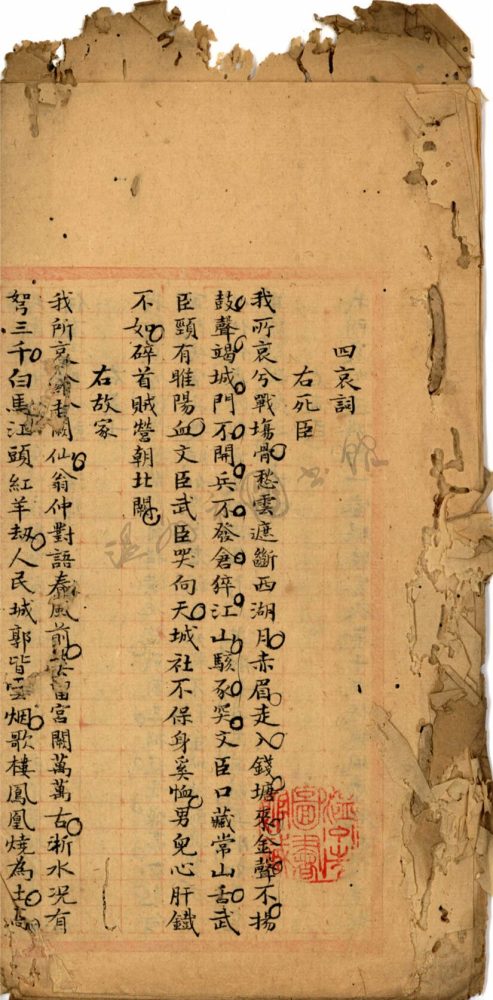 四哀詞
右死臣
我所哀兮戰場骨愁雲遮斷西湖月赤眉走入錢塘來金聲不揚
鼓聲竭城門不開兵不發倉猝江山駭豕突文臣口藏常山舌武
臣頸有睢陽血文臣武臣哭向天城社不保身奚恤男兒心肝鐵
不如碎首賊營朝北闕
右故家
我所哀兮 仙翁仲對語春風前 留宮闕萬萬古淅水況有
弩三千白馬江頭紅羊劫人民城郭皆雲烟歌樓鳳凰燒為土高